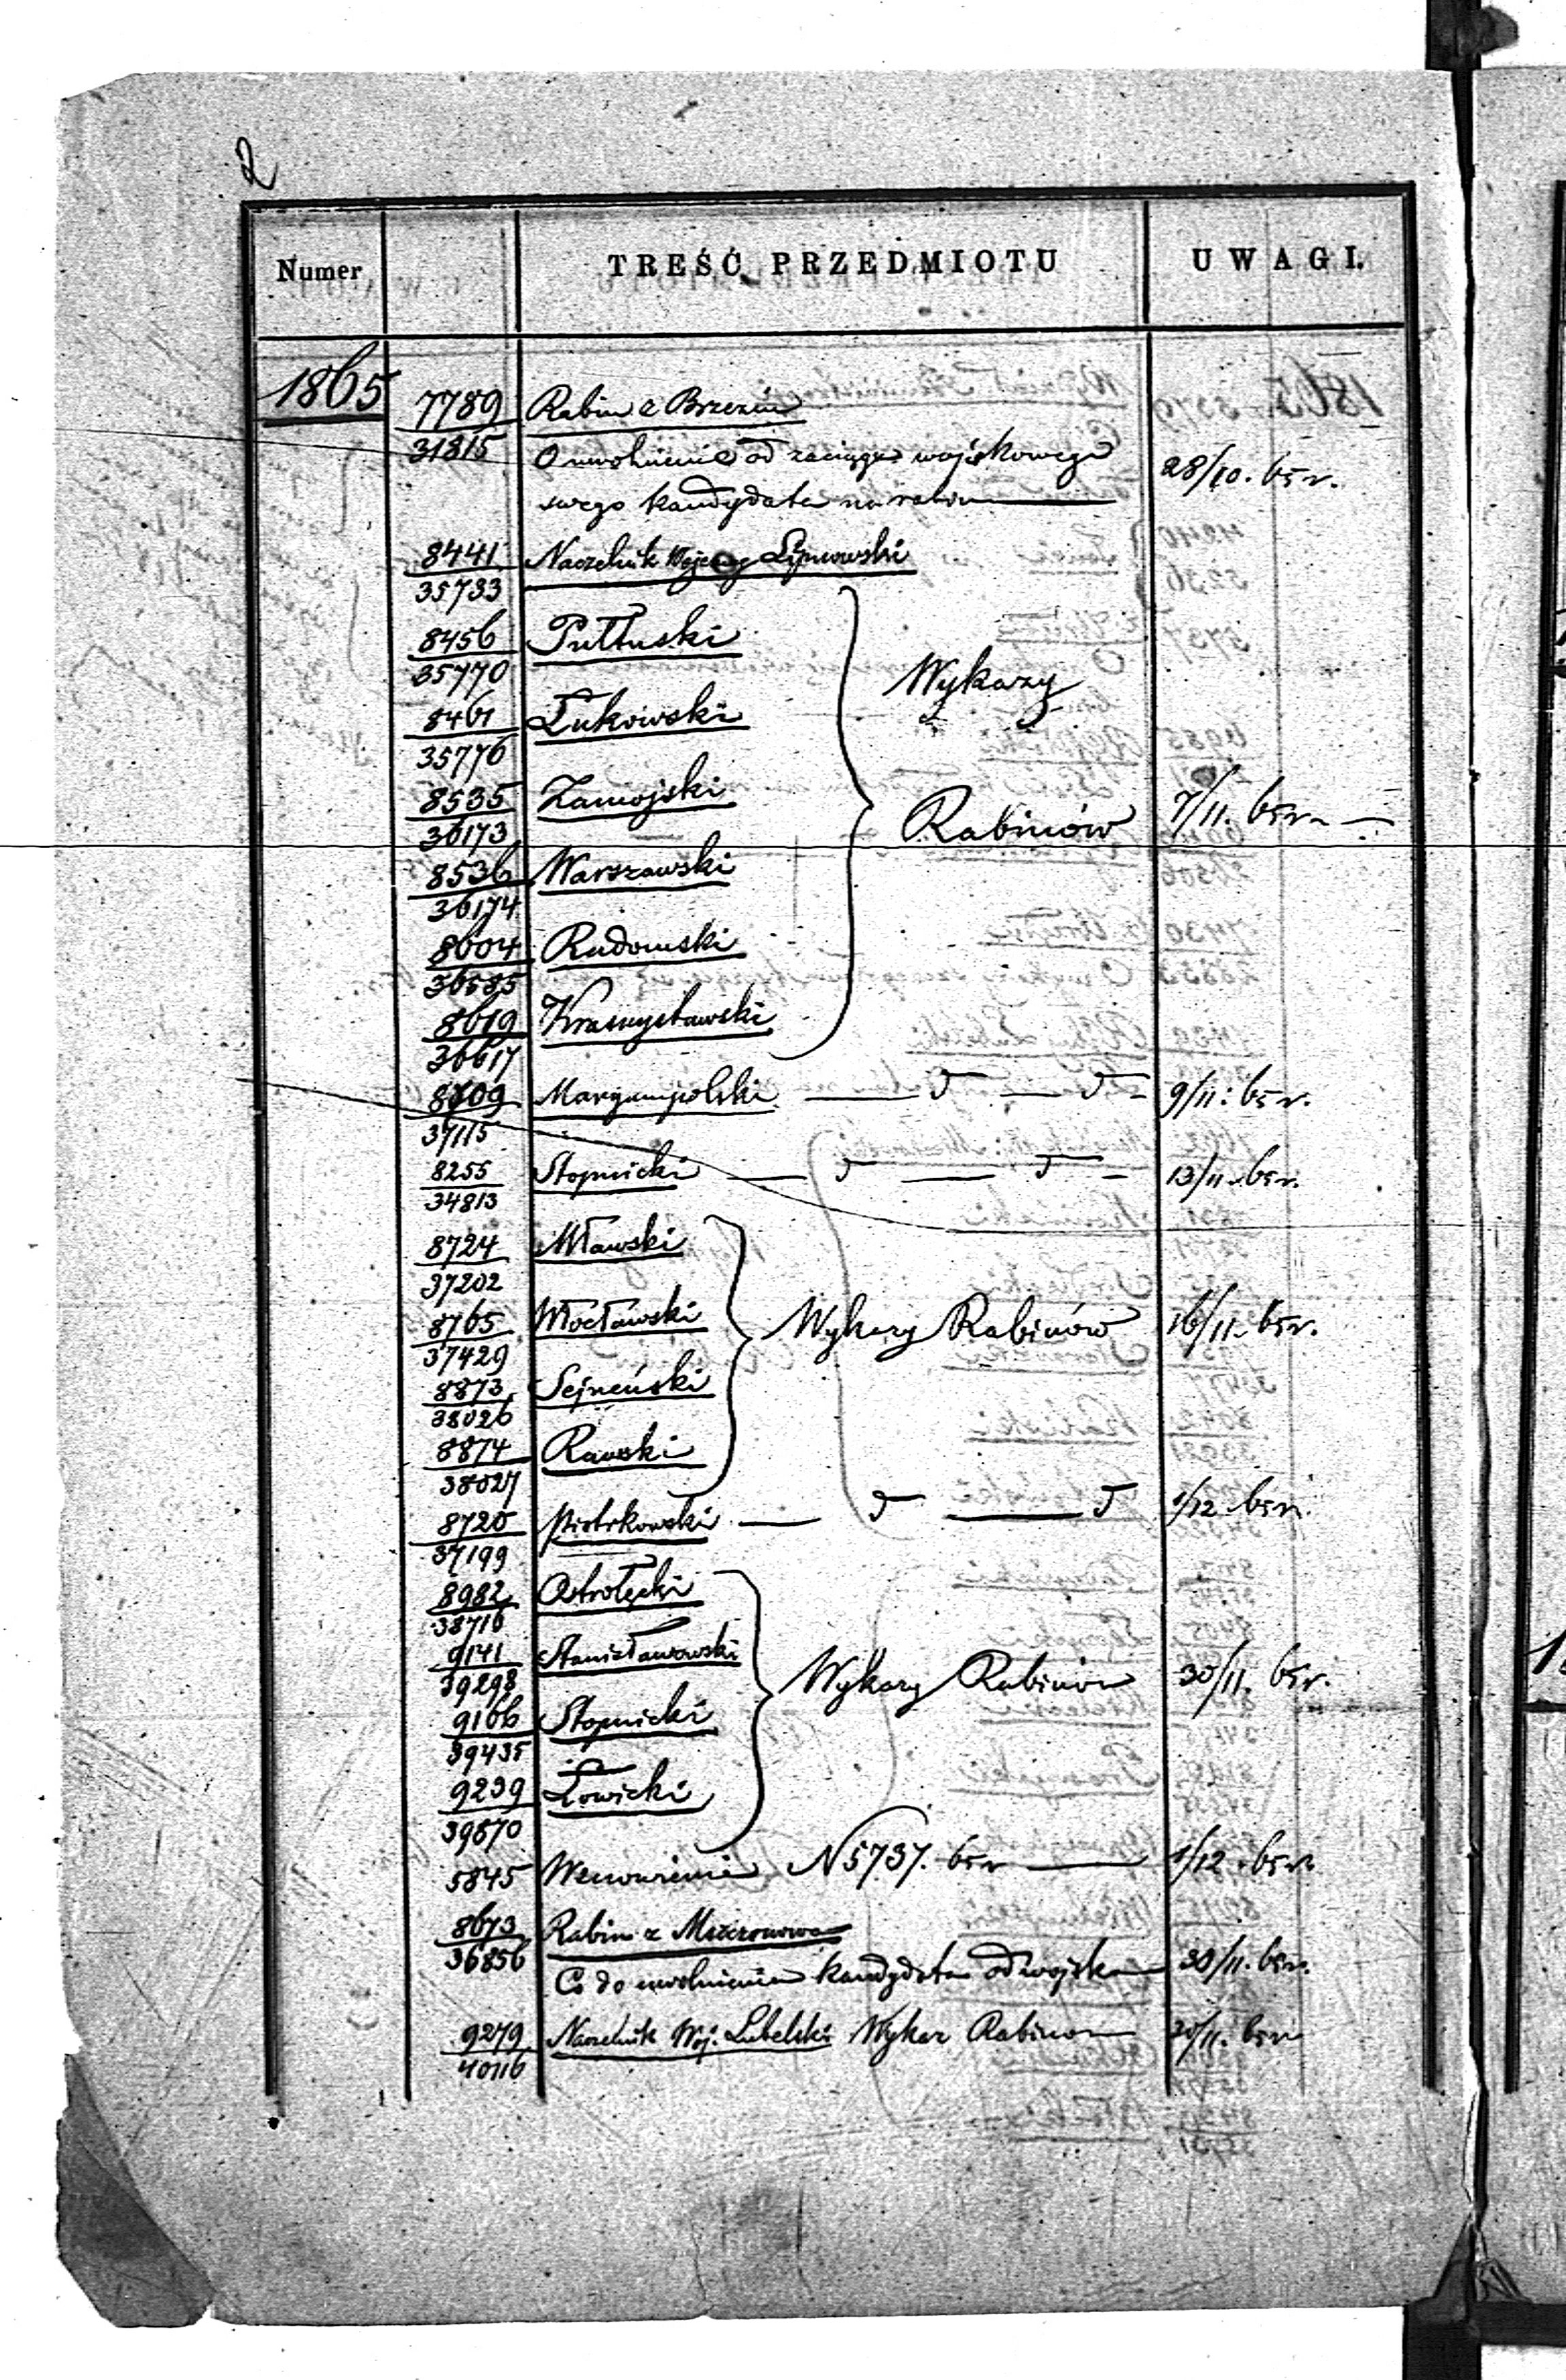 2
Numer TREŚĆ PRZEDMIOTU UWAGI.
1865
7789 Rabin z Brzezin
31815 O uwolnienie od zaciągu wojskowego 28/10. 65 r.
swego kandydata na rabina
8441 Naczelnik Wojenny Lipnowski
35733
8456 Pułtuski
35770 Wykazy
8461 Łukowski
35776
8535 Zamojski Rabinów 7/11. 65 r.
36173
8536 Warszawski
36174
8604 Radomski
36585
8619 Krasnystawski
36617
8709 Maryampolski — d — d — 9/11. 65 r.
37115
8255 Stopnicki — d — d — 13/11. 65 r.
34813
8724 Mławski
37202
8765 Włocławski Wykazy Rabinów 16/11. 65 r.
37429
8873 Sejneński
38026
8874 Rawski
38027
8720 Piotrkowski — d — d 1/12 65 r.
37199
8982 Ostrołęcki
38716
9141 Stanisławowski Wykazy Rabinów 30/11. 65 r.
39298
9166 Stopnicki
39435
9239 Łowicki
39870
5845 Wznowienie N 5737. 65 r — 1/12. 65 r.
8673 Rabin z Mszczonowa
36856 Co do uwolnienia kandydata od wojska 30/11. 65 r.
9279 Naczelnik Woj. Lubelski Wykaz Rabinów 30/11. 65 r
40116